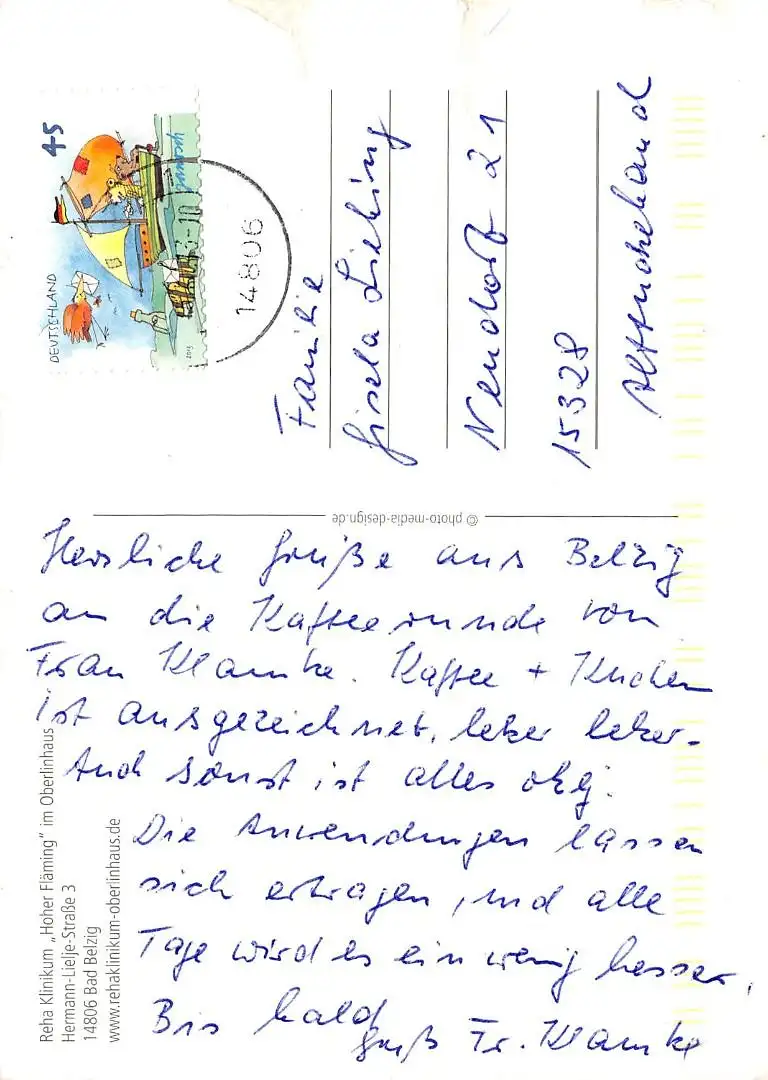 Herzliche Grüße aus Belzig
an die Kaffeerunde von
Frau Klamke. Kaffee + Kuchen
ist ausgezeichnet, leker leker.
Auch sonst ist alles okej.
Die Anwendungen lassen
sich ertragen, und alle
Tage wird es ein wenig besser.
Bis bald
Gruß Fr. Klamke
DEUTSCHLAND
45
2013
14806
Familie
Gisela Liebing
Neudorf 21
15328
Alttucheband
© photo-media-design.de
Reha Klinikum „Hoher Fläming" im Oberlinhaus
Hermann-Lielje-Straße 3
14806 Bad Belzig
www.rehaklinikum-oberlinhaus.de